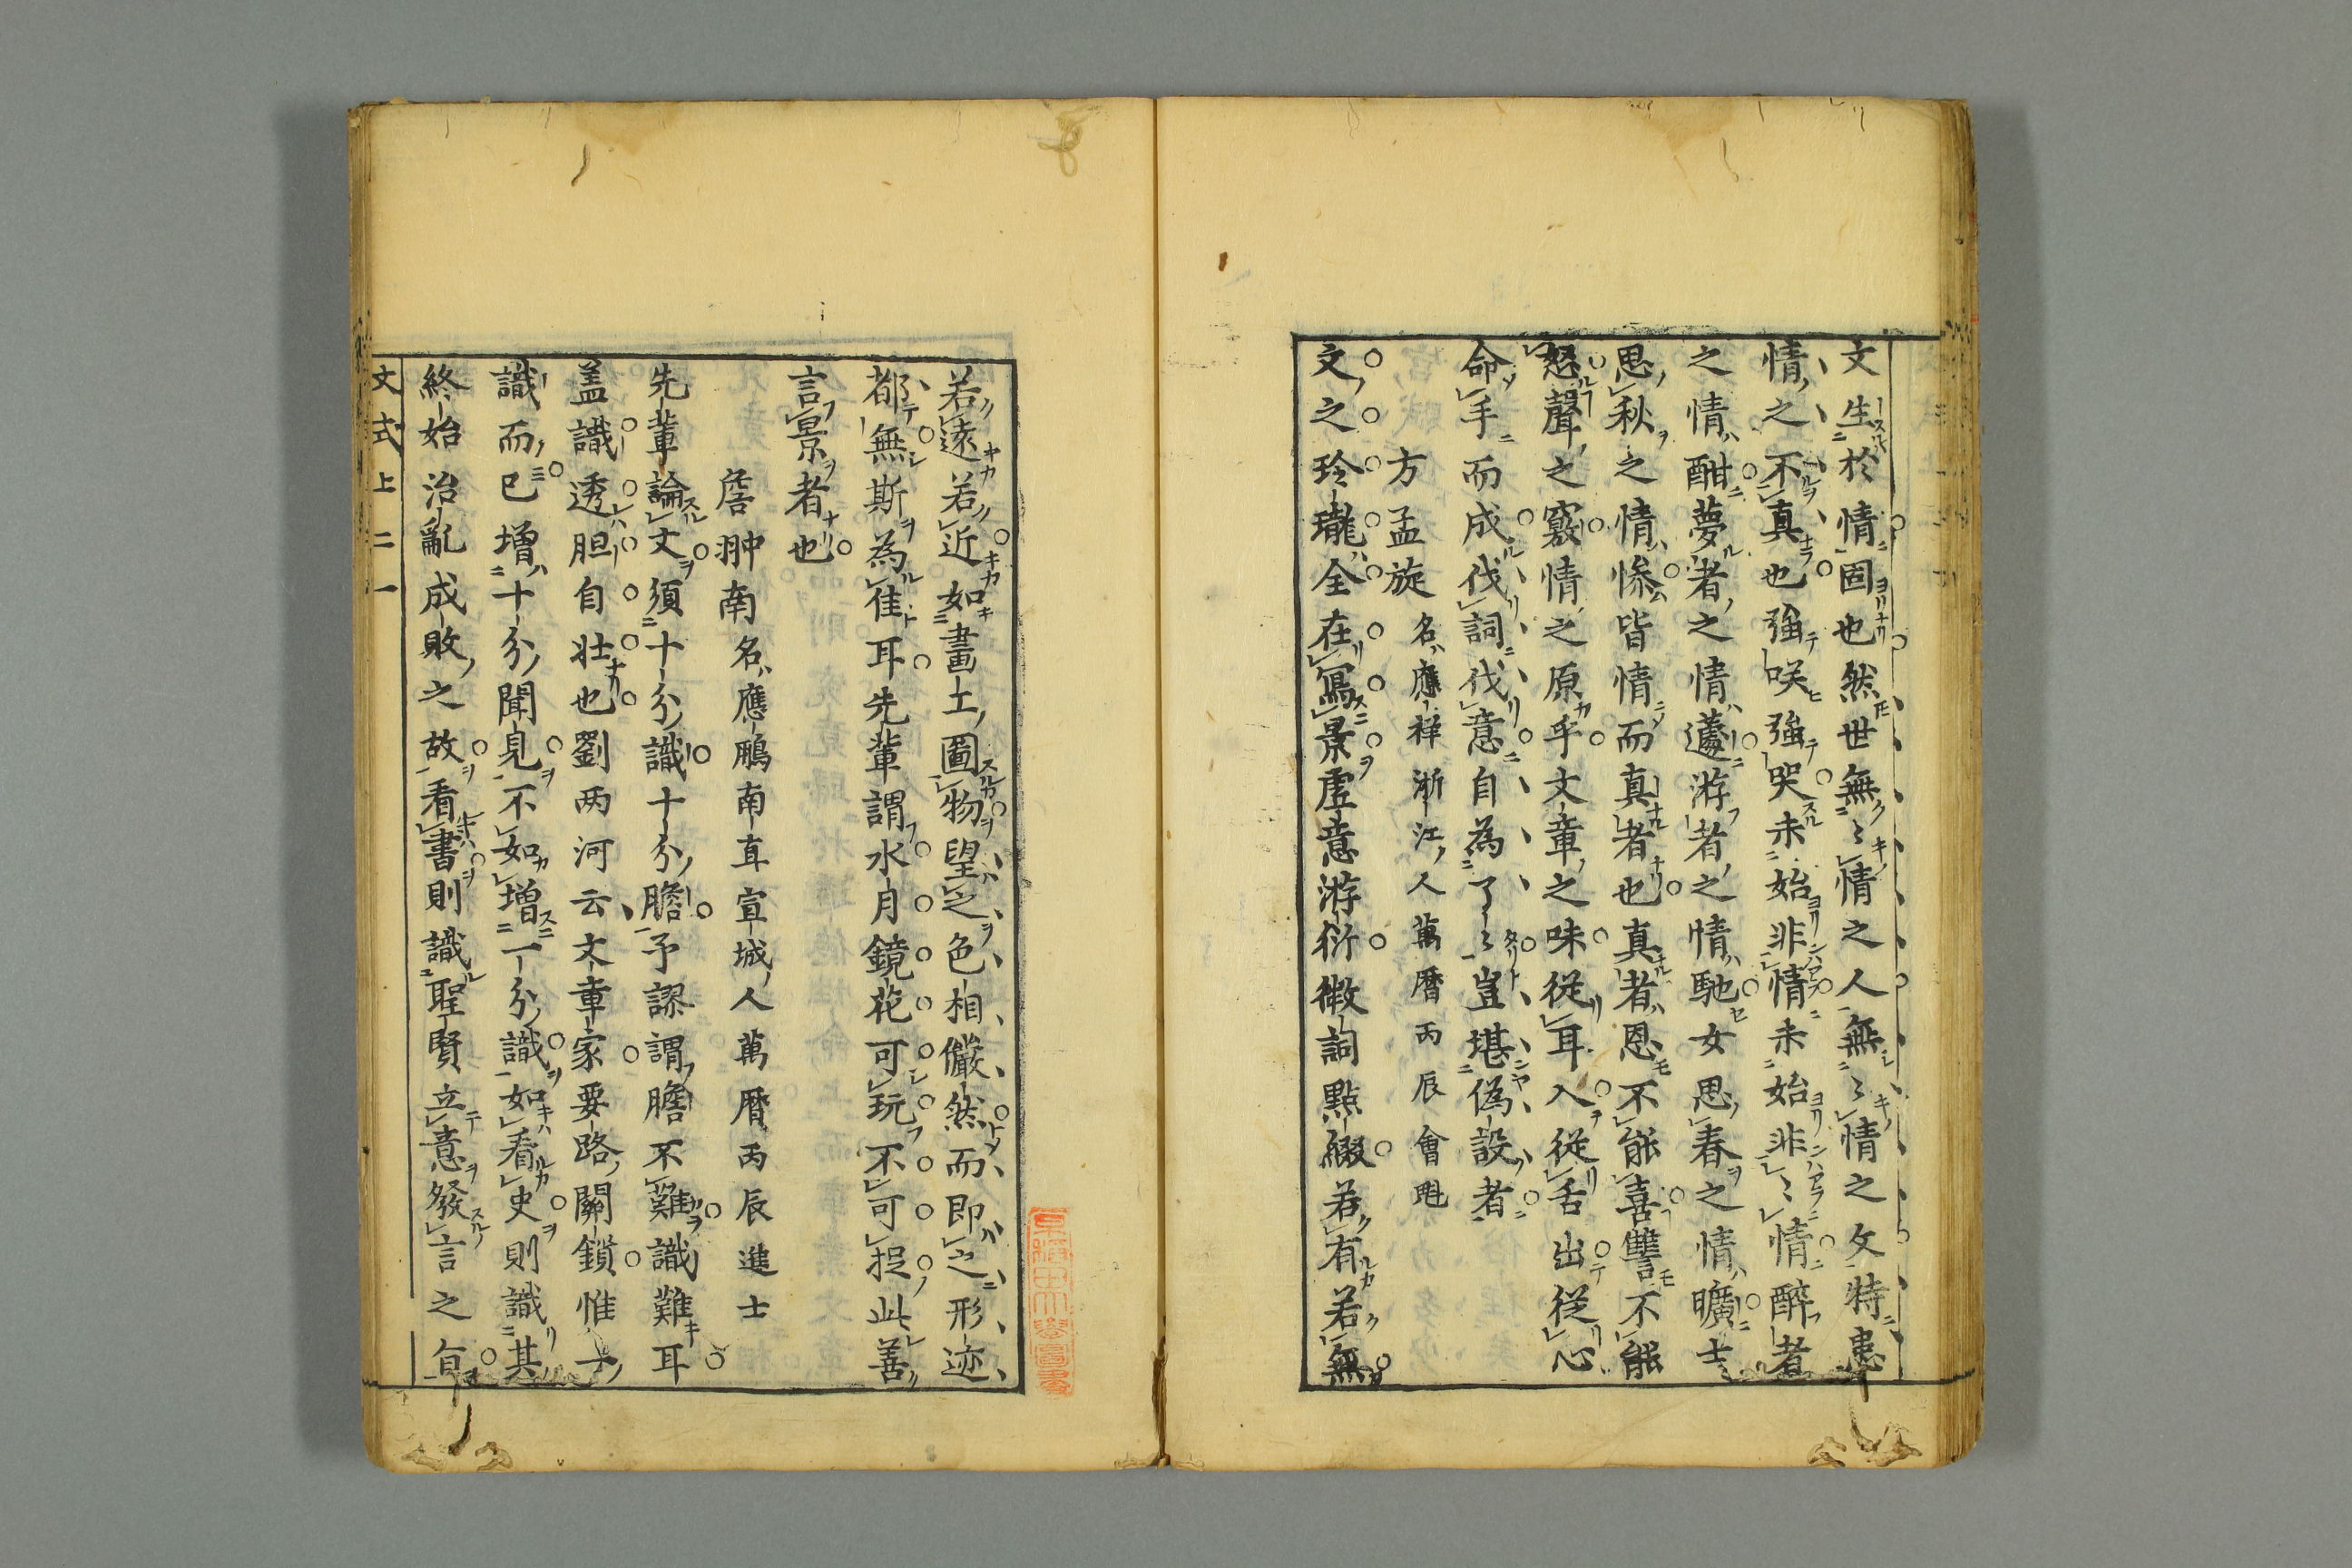 文生於情固也然世無〻情之人無〻情之文特患
情之不真也強咲強哭未始非情未始非〻情醉者
之情酣夢者之情蘧游者之情馳女思春之情曠士
思秋之情惨皆情而真者也真者恩不能喜讐不能
怒聲之竅情之原乎文章之味從耳入從舌出從心
命手而成伐詞伐意自為了〻豈堪偽設者
方孟旋 名應祥浙江人萬曆丙辰會魁
文之玲瓏全在寫景虛意游衍微詞點綴若有若無
若遠若近如畫工圖物望之色相儼然而即之形迹
都無斯為佳耳先輩謂水月鏡花可玩不可捉此善
言景者也
詹翀南 名應鵬南直宣城人萬曆丙辰進士
先輩論文須十分識十分膽予謬謂膽不難識難耳
盖識透胆自壯也劉兩河云文章家要路關鎖惟一
識而已增十分聞見不如增一分識如看史則識其
終始治亂成敗之故看書則識聖賢立意發言之旨
文式 上二 一